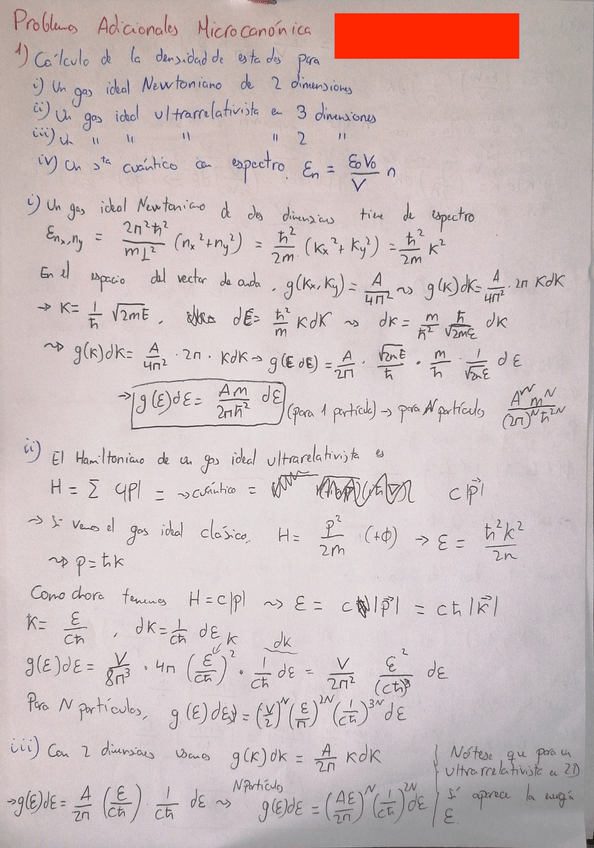 Problemas Adicionales Microcanónica
1) Cálculo de la densidad de estados para
i) Un gas ideal Newtoniano de 2 dimensiones
ii) Un gas ideal ultrarrelativista en 3 dimensiones
iii) Un " " " " 2 "
iv) Un sta cuántico con espectro. En = E0V0/V n
i) Un gas ideal Newtoniano de dos dimensiones tiene de espectro
εnx,ny = 2π²ħ²/mL² (nx²+ny²) = ħ²/2m (kx²+ky²) = ħ²/2m k²
En el espacio del vector de onda, g(kx,ky) = A/4π² ⇝ g(k)dk = A/4π² · 2π kdk
→ k = 1/ħ √2mE, dE = ħ²/m kdk ⇝ dk = m/ħ² ħ/√2mE dk
⇝ g(k)dk = A/4π² · 2π · kdk → g(E dE) = A/2π · √2mE/ħ · m/ħ · 1/√2mE dE
→ g(E)dE = Am/2πħ² dE (para 1 partícula) → para N partículas A^N m^N/(2π)^N ħ^2N
ii) El Hamiltoniano de un gas ideal ultrarrelativista es
H = Σ c|p| = → cuántico = c|p⃗|
→ Si vemos el gas ideal clásico, H = p²/2m (+ϕ) → ε = ħ²k²/2m
⇝ p = ħk
Como ahora tenemos H = c|p| ⇝ ε = c|p⃗| = cħ|k⃗|
k = ε/cħ, dk = 1/cħ dε
g(ε)dε = V/8π³ · 4π (ε/cħ)² · 1/cħ dε = V/2π² ε²/(cħ)³ dε
Para N partículas, g(ε)dε = (V/2)^N (ε/π)^2N (1/cħ)^3N dε
iii) Con 2 dimensiones usamos g(k)dk = A/2π kdk
→ g(ε)dε = A/2π (ε/cħ) · 1/cħ dε ⇝ N partículas g(ε)dε = (Aε/2π)^N (1/cħ)^2N dε
Nótese que para un
ultrarrelativista en 2D
sí aparece la energía
ε.